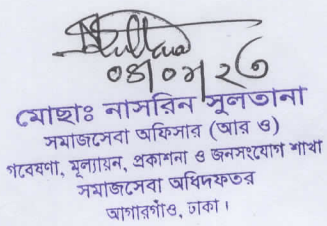 ০৪/০৩/২৩
মোছাঃ নাসরিন সুলতানা
সমাজসেবা অফিসার (আর ও)
গবেষণা, মূল্যায়ন, প্রকাশনা ও জনসংযোগ শাখা
সমাজসেবা অধিদফতর
আগারগাঁও, ঢাকা।